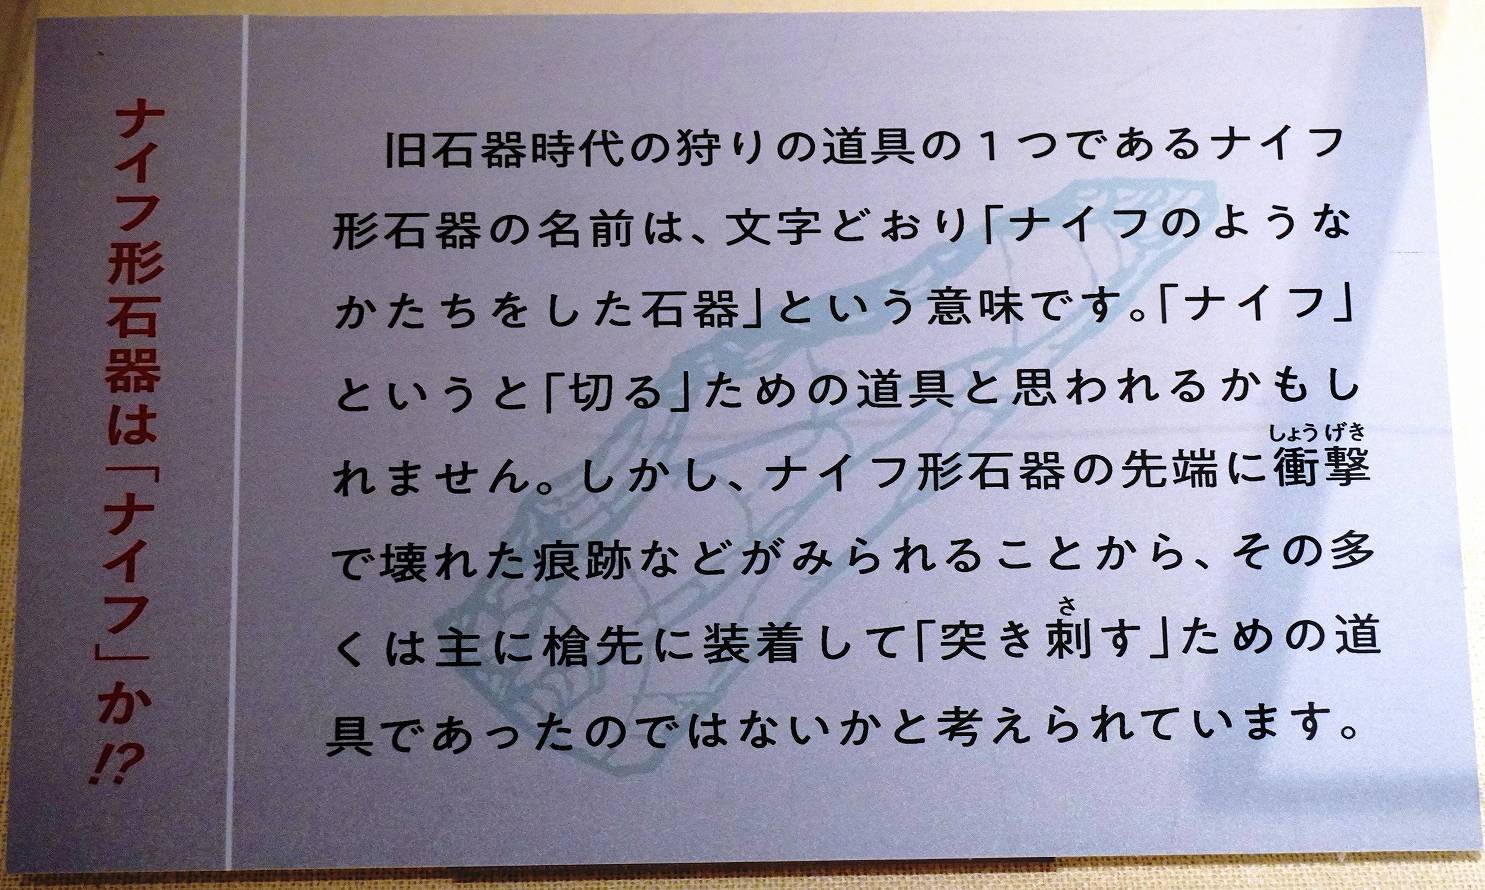 ナイフ形石器は「ナイフ」か!?
旧石器時代の狩りの道具の１つであるナイフ
形石器の名前は、文字どおり「ナイフのような
かたちをした石器」という意味です。「ナイフ」
というと「切る」ための道具と思われるかもし
しょうげき
れません。しかし、ナイフ形石器の先端に衝撃
で壊れた痕跡などがみられることから、その多
さ
くは主に槍先に装着して「突き刺す」ための道
具であったのではないかと考えられています。